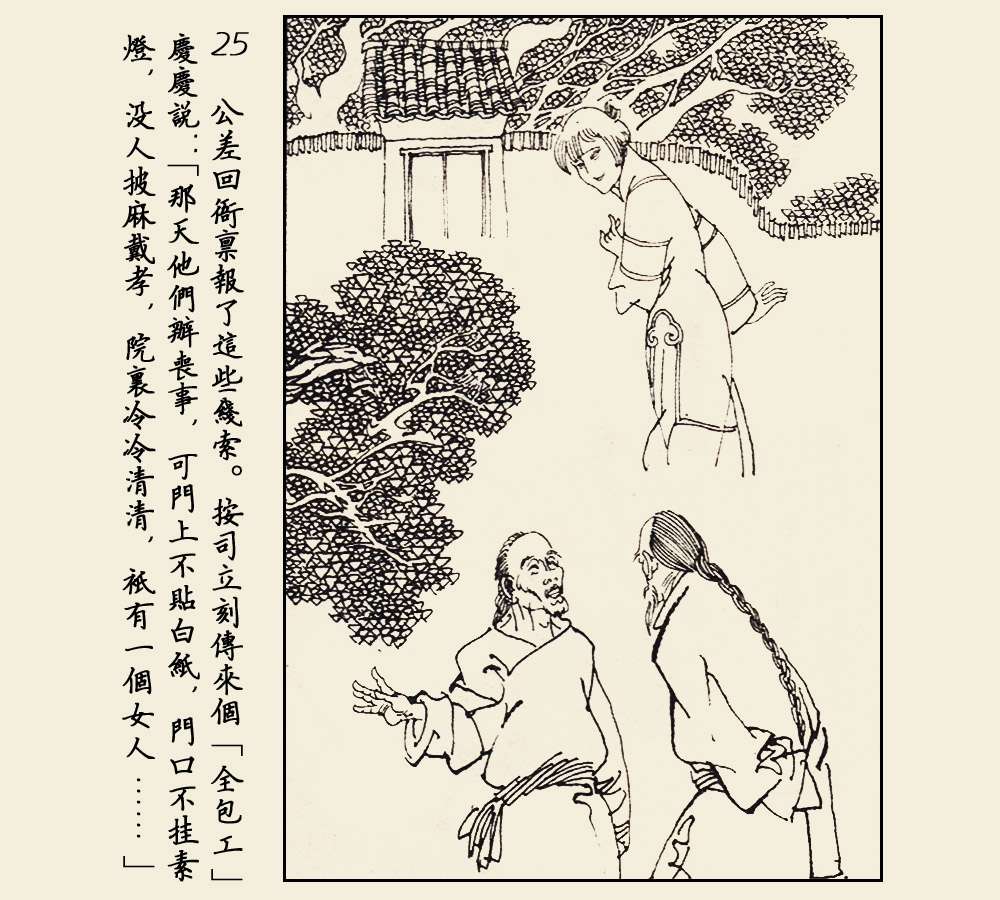 25
公差回衙禀報了這些綫索。按司立刻傳來個「全包工」
慶慶説：「那天他們辦喪事，可門上不貼白紙，門口不挂素
燈，没人披麻戴孝，院裏冷冷清清，祇有一個女人……」